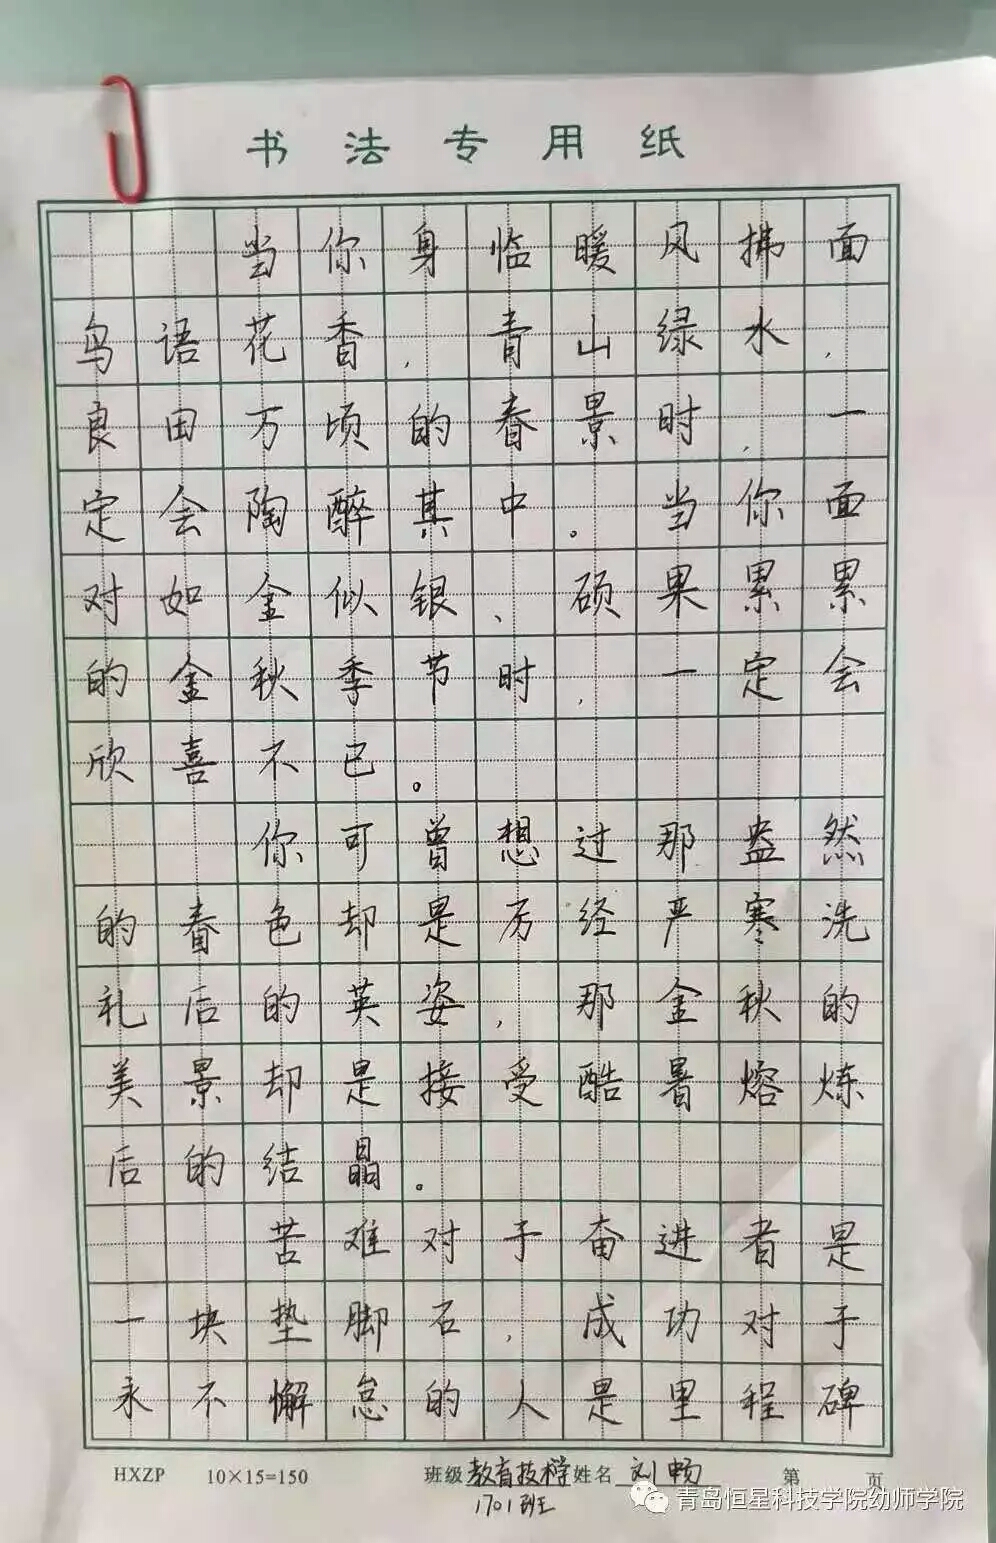 书法专用纸
当你身临暖风拂面
鸟语花香,青山绿水,
良田万顷的春景时,一
定会陶醉其中。当你面
对如金似银、硕果累累
的金秋季节时,一定会
欣喜不已。
你可曾想过那盎然
的春色却是历经严寒洗
礼后的英姿,那金秋的
美景却是接受酷暑熔炼
后的结晶。
苦难对于奋进者是
一块垫脚石,成功对于
永不懈怠的人是里程碑
HXZP 10×15=150 班级 教育技术学 姓名 刘畅 第 页
1701班
青岛恒星科技学院幼师学院